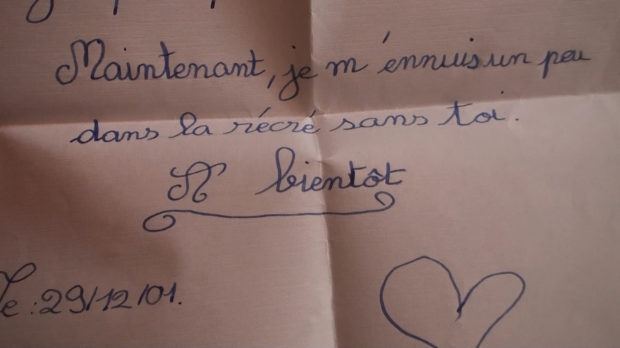 Maintenant, je m'ennuis un peu
dans la récré sans toi.
A bientôt
Le : 29/12/01.